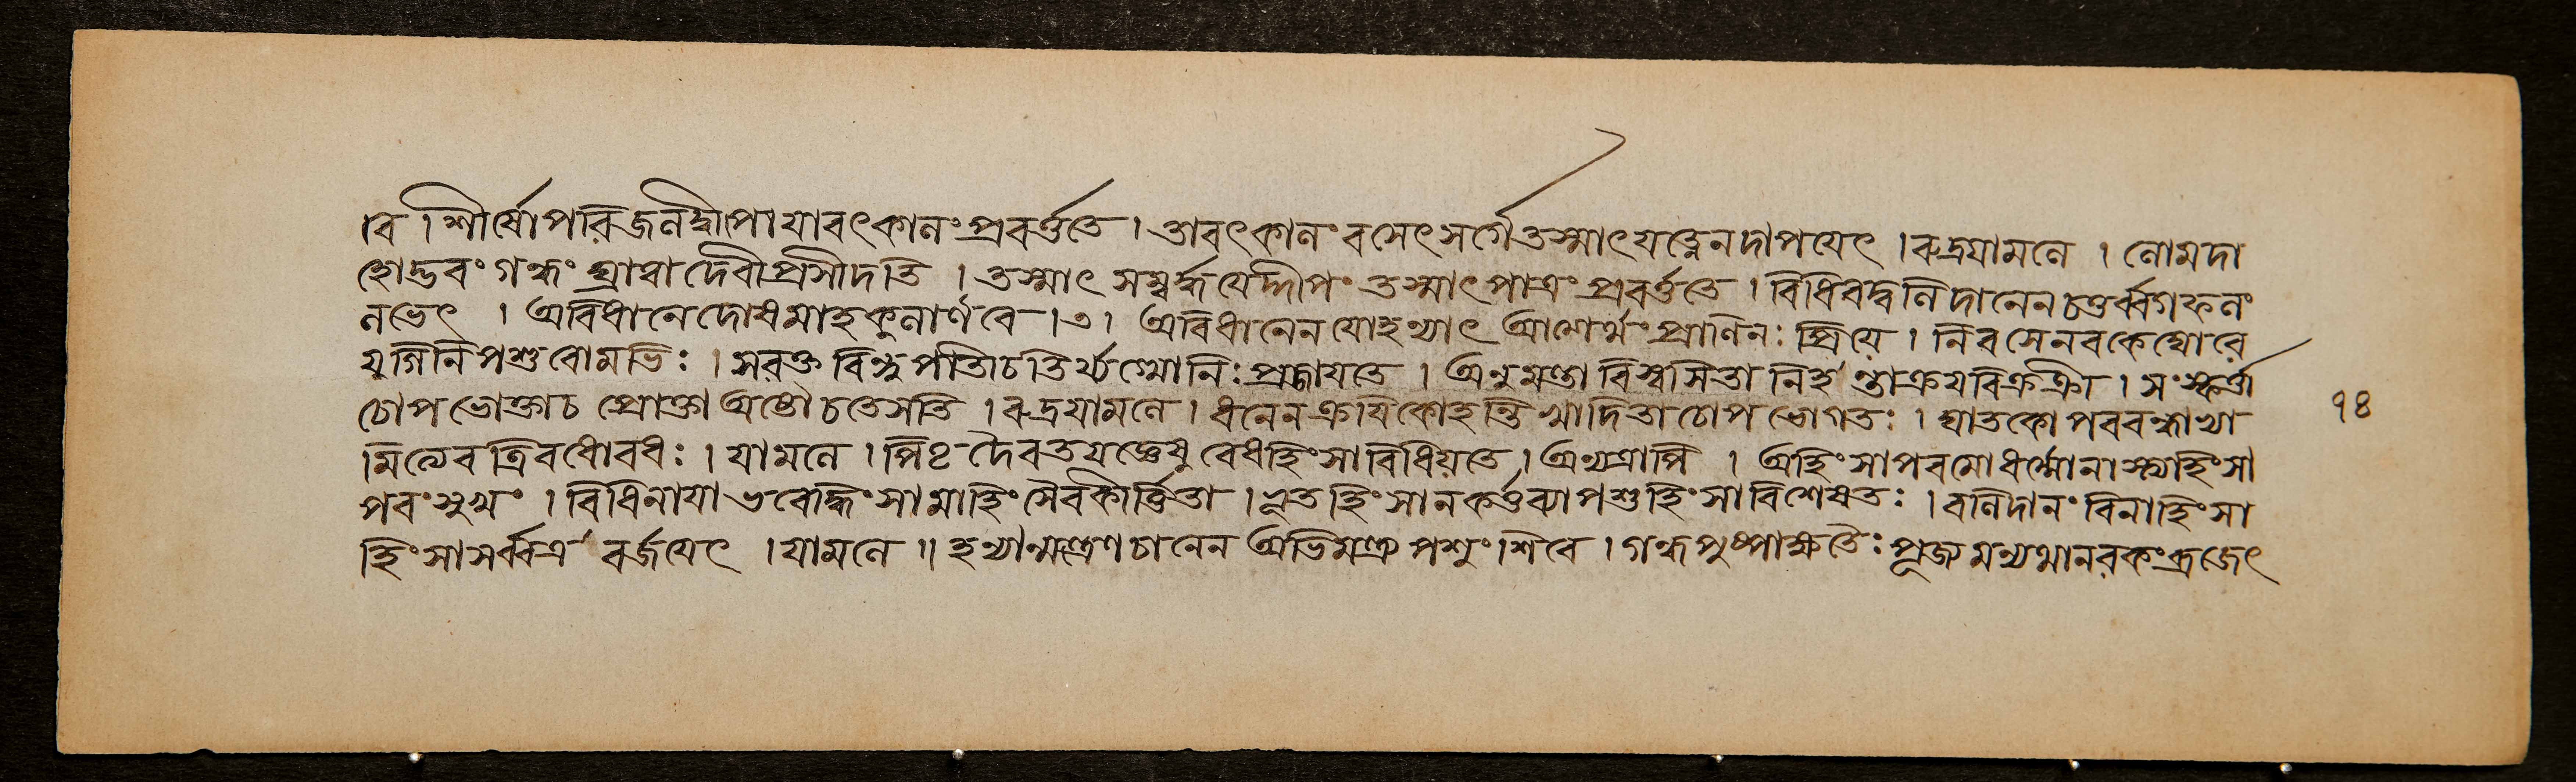 বে । শীর্ষোপরি জলদ্দীপো যাবৎকালং প্রবর্ত্ততে । তাবৎকালং বসেৎ সর্গে তস্মাৎ যত্নেন দাপয়েৎ । রুদ্রযামলে । লোমদা
হোদ্ভবং গন্ধং ঘ্রাত্বা দেবী প্রসীদতি । তস্মাৎ সম্বর্দ্ধয়েদ্দীপং তস্মাৎ পাত্রং প্রবর্ত্ততে । বিধিবদ্বলিদানেন চতুর্ব্বর্গফলং
লভেৎ । অবিধানে দোষমাহ কুলার্ণবে ।৩। অবিধানেন যো হন্যাৎ আত্মার্থং প্রাণিনঃ প্রিয়ে । নিবসেন্নরকে ঘোরে
দিনানি পশুরোমভিঃ । সরক্ত বিন্দু পতিচ তির্য্যগ্যোনিঃ প্রজায়তে । অনুমন্তা বিশ্বসিতা নিহন্তা ক্রয়বিক্রক্রী । সংস্কর্ত্তা
চোপভোক্তাচ প্রোক্তা অষ্টৌ চতেসতি । রুদ্রযামলে । ধনেন ক্রয়িকোহন্তি খাদিতা চোপভোগতঃ । ঘাতকো পরবন্ধাখা
মিত্যেব ত্রিবধোবধঃ । যামলে । পিতৃদৈবতযজ্ঞেষু বেধহিংসা বিধিয়তে । অন্যত্রাপি । অহিংসা পরমোধর্ম্মো নাস্ত্যহিংসা
পরং সুখং । বিধিনা যা ভবেদ্ধিংসা মাহিংসৈব কীর্ত্তিতা । এতহিংসা ন কর্ত্তব্যা পশুহিংসা বিশেষতঃ । বলিদানং বিনা হিংসা
হিংসা সর্ব্বত্র বর্জয়েৎ । যামলে ॥ হন্যান্মন্ত্রেণ চানেন অভিমন্ত্র্য পশুং শিবে । গন্ধপুষ্পাক্ষতৈঃ পূজ্য মন্যথা নরকং ব্রজেৎ
১৪